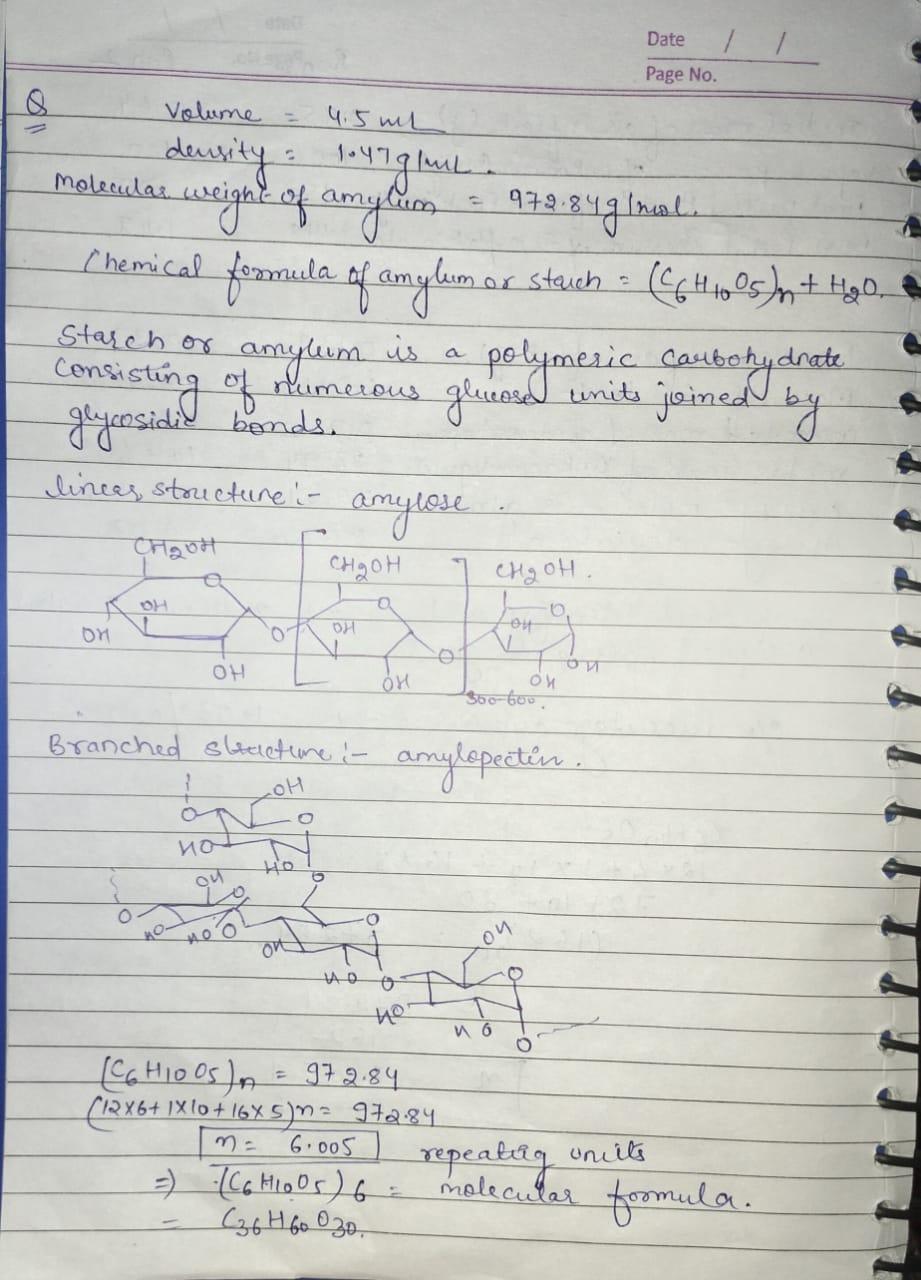 Date / /
Page No.
Q Volume = 4.5 mL
density = 1.47 g/mL.
Molecular weight of amylum = 972.84 g/mol.
Chemical formula of amylum or starch = (C6H10O5)n + H2O.
Starch or amylum is a polymeric carbohydrate
Consisting of numerous glucose units joined by
glycosidic bonds.
linear structure :- amylose.
CH2OH CH2OH CH2OH.
O O O
OH OH OH
OH O O OH
OH OH OH
300-600.
Branched structure :- amylopectin.
OH
O O
HO HO
OH O O
O HO HO O O
OH OH
HO O O
HO HO O
(C6H10O5)n = 972.84
(12x6+1x10+16x5)n = 972.84
n = 6.005 repeating units
=> (C6H10O5)6 = molecular formula.
= C36H60O30.